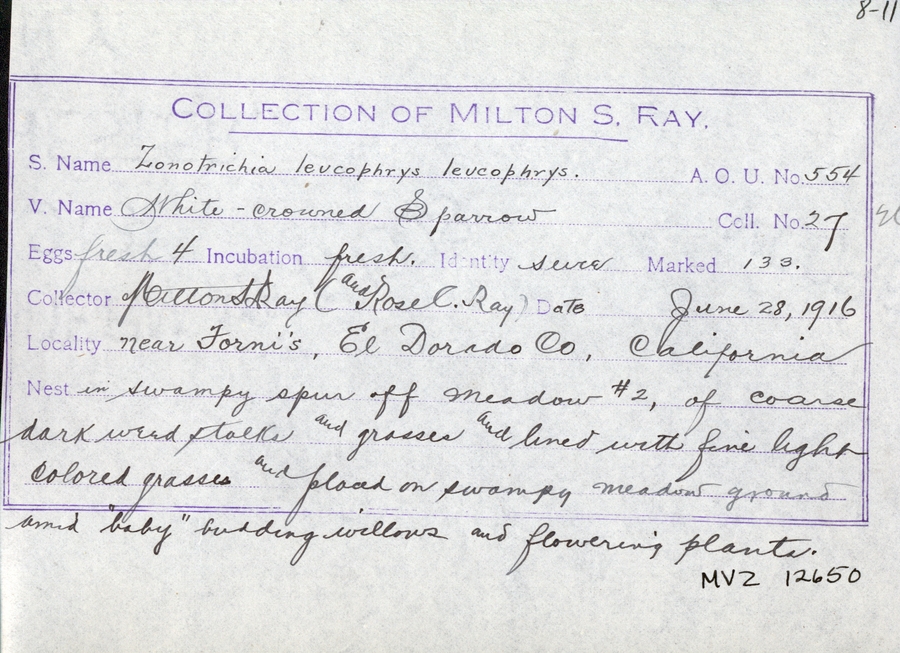 8-11
COLLECTION OF MILTON S. RAY.
S. Name Zonotrichia leucophrys leucophrys. A. O. U. No. 554
V. Name White-crowned Sparrow Coll. No. 27
Eggs fresh 4 Incubation fresh. Identity sure Marked 133.
Collector Milton S Ray (and Rose C. Ray) Date June 28, 1916
Locality near Forni's, El Dorado Co, California
Nest in swampy spur off meadow #2, of coarse
dark weed stalks and grasses and lined with fine light
colored grasses and placed on swampy meadow ground
amid "baby" budding willows and flowering plants.
MVZ 12650